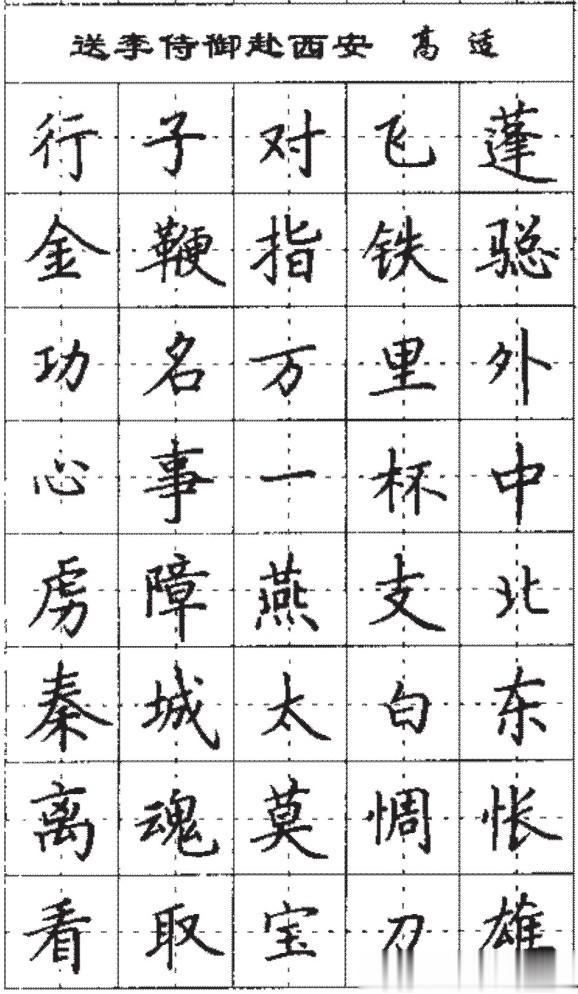 送李侍御赴西安 高适
行子对飞蓬
金鞭指铁骢
功名万里外
心事一杯中
虏障燕支北
秦城太白东
离魂莫惆怅
看取宝刀雄